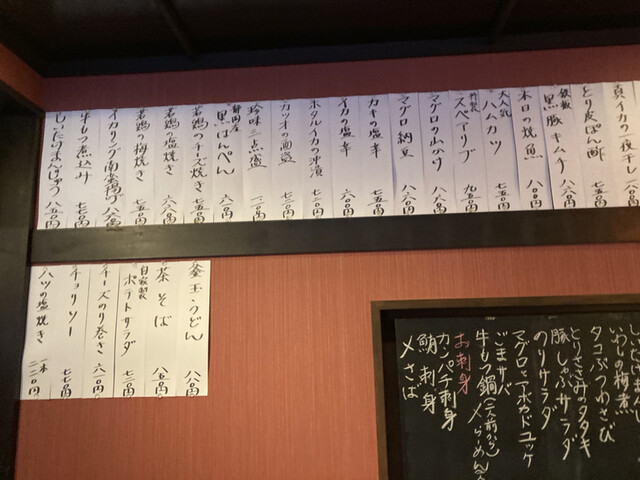 真イカの一夜干し
とり皮ぽん酢 七五〇円
鉄板 黒豚キムチ 八八〇円
本日の焼魚 八〇〇円
大人気 ハムカツ 七五〇円
特製 スペアリブ 九五〇円
マグロの山かけ 八八〇円
マグロ納豆
カキの塩辛
イカの塩辛 六〇〇円
ホタルイカの沖漬 七二〇円
カツオの酒盗
珍味三点盛
静岡産 黒はんぺん
若鶏のチーズ焼き 七五〇円
若鶏の塩焼き
若鶏の梅焼き 七五〇円
イカリング南蛮揚げ
牛もつ煮込み 七七〇円
しいたけまんじゅう 八五〇円
釜玉うどん 八八〇円
茶そば 八五〇円
自家製 ポテトサラダ
チーズのり巻き
チョリソー 七七〇円
ハツの塩焼き 一本 二二〇円
いわしの梅煮
タコぶつわさび
とりささみのタタキ
豚しゃぶサラダ
のりサラダ
マグロとアボカドユッケ
ごまサバ
牛もつ鍋(二人前から)
〆らーめん
お刺身
カンパチ刺身
〆さば